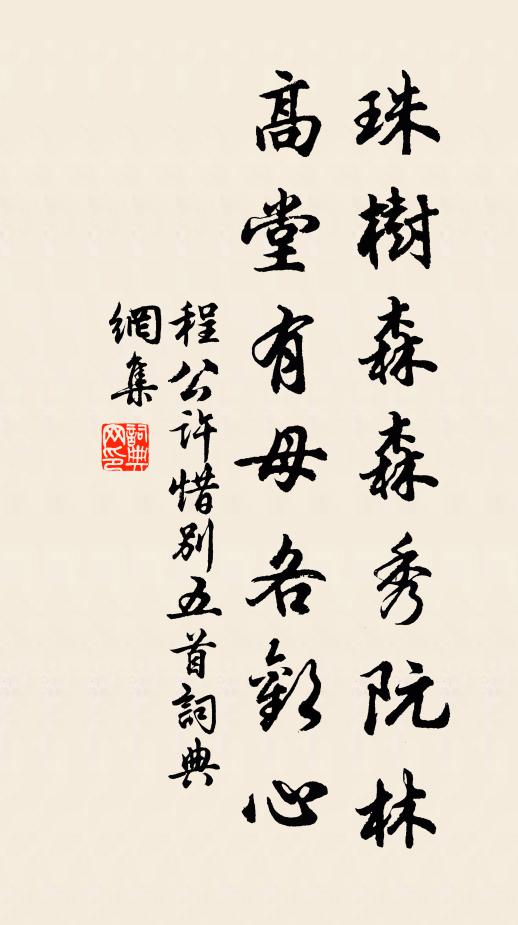 珠樹森森秀阮林
高堂有母各歡心
程公許惜別五首詞典
網集
詞典
网印